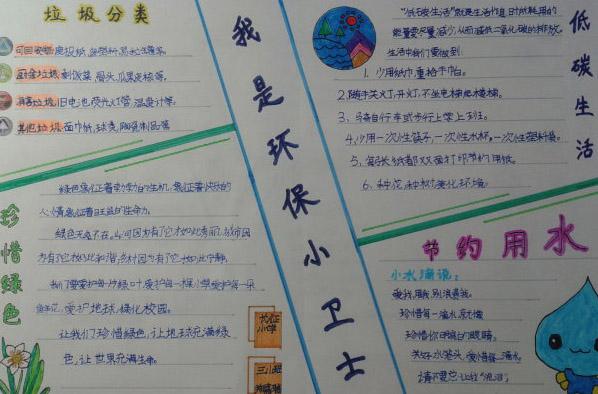 垃圾分类
可回收物:废报纸、
厨余垃圾:剩饭菜、骨头、瓜果皮核等。
有害垃圾:旧电池、荧光灯管、温度计等。
其他垃圾:面巾纸、陶瓷制品等
珍惜绿色
绿色象征着勃勃的生机,象征着快乐的
心情,象征着旺盛的生命力。
绿色无处不在。山河因为有了它才如此美丽,城市因
为有了它才如此和谐,乡村因为有了它才如此宁静。
我们要爱护每一片绿叶,爱护每一棵小草,爱护每一朵
鲜花,爱护地球,绿化校园。
让我们珍惜绿色,让地球充满绿
色,让世界充满生命。
长征
小学
三
我是环保小卫士
低碳生活
“低碳生活”就是生活作息时所耗用的
能量要尽量减少,从而减低二氧化碳的排放。
生活中我们要做到:
1、少用纸巾,重拾手巾。
2、随手关灯、开灯,不坐电梯爬楼梯。
3、骑自行车或步行上学上班。
4、少用一次性筷子、一次性水杯、一次性塑料袋。
5、每张纸都双面打印节约用纸。
6、种花、种树,美化环境。
节约用水
小水滴说:
爱我,用我,别浪费我。
珍惜每一滴水,就像
珍惜你明亮的眼睛。
关好水龙头,爱惜每一滴水。
请不要忘,让我“流泪”。